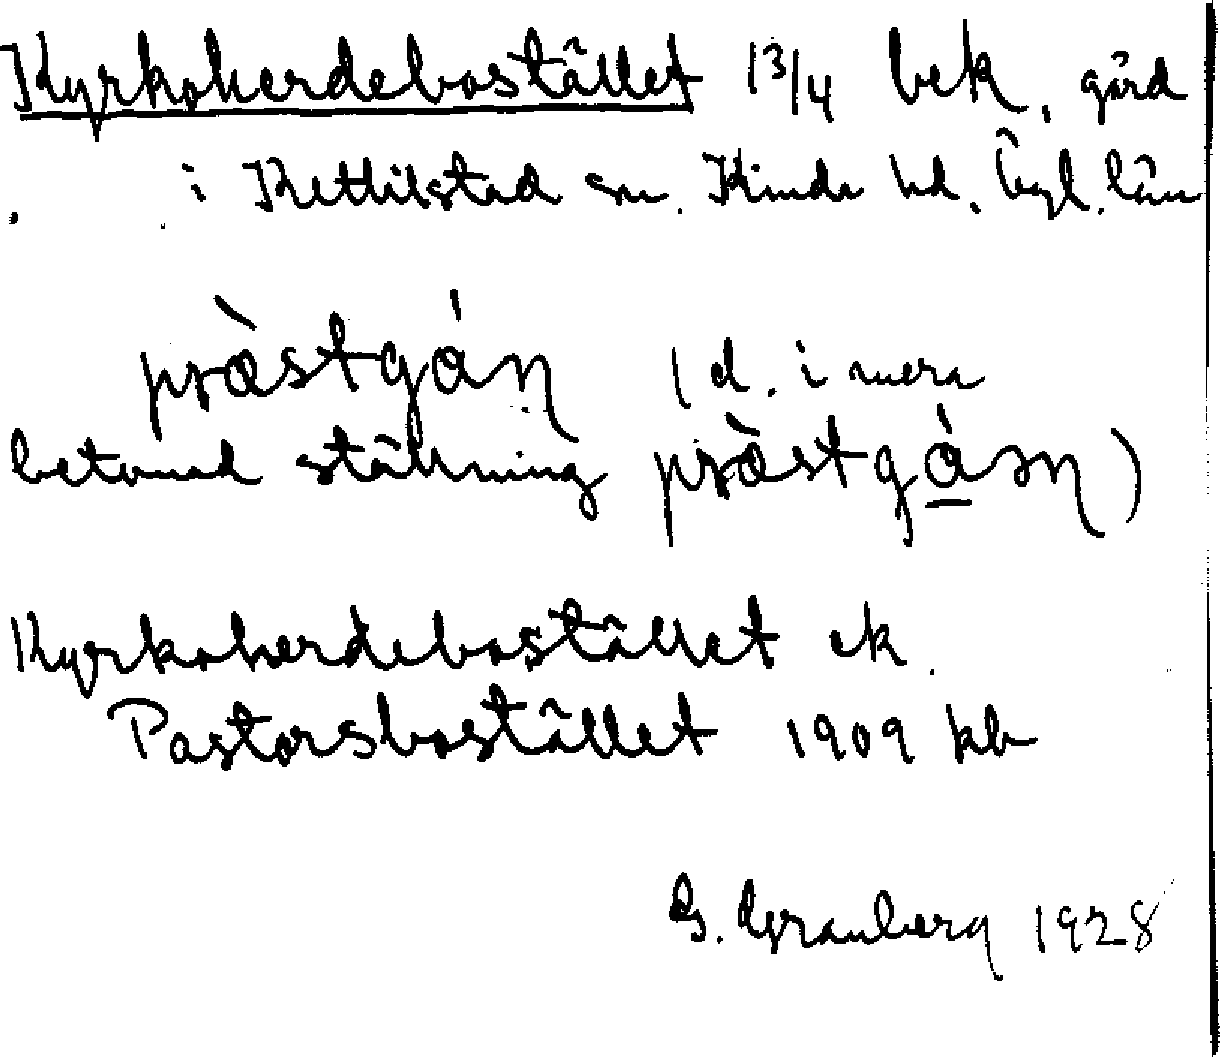 Kyrkoherdebostället 13/4 bek. gård
i Kettilstad sn. Kinda hd. Ögl. län
pràstgán (d. i mera
betonad ställning pràstgán)
Kyrkoherdebostället ek.
Pastorsbostället 1909 kb
G. Granberg 1928